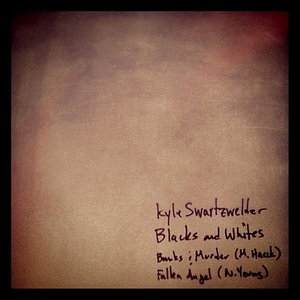 Kyle Swartzwelder
Blacks and Whites
Bucks & Murder (M. Hacek)
Fallen Angel (N. Young)